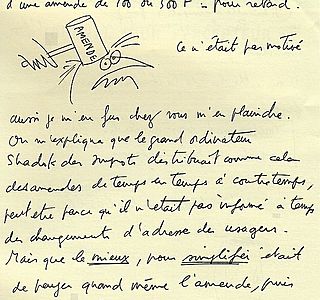 d'une amende de 100 ou 500 F - pour retard.
AMENDE
ce n'était pas motivé
aussi je m'en fus chez vous m'en plaindre.
On m'expliqua que le grand ordinateur
Shadok des impots distribuait comme cela
des amendes de temps en temps à contretemps,
peut être parce qu'il n'était pas informé à temps
des changements d'adresse des usagers.
Mais que le mieux, pour simplifier était
de payer quand même l'amende, puis